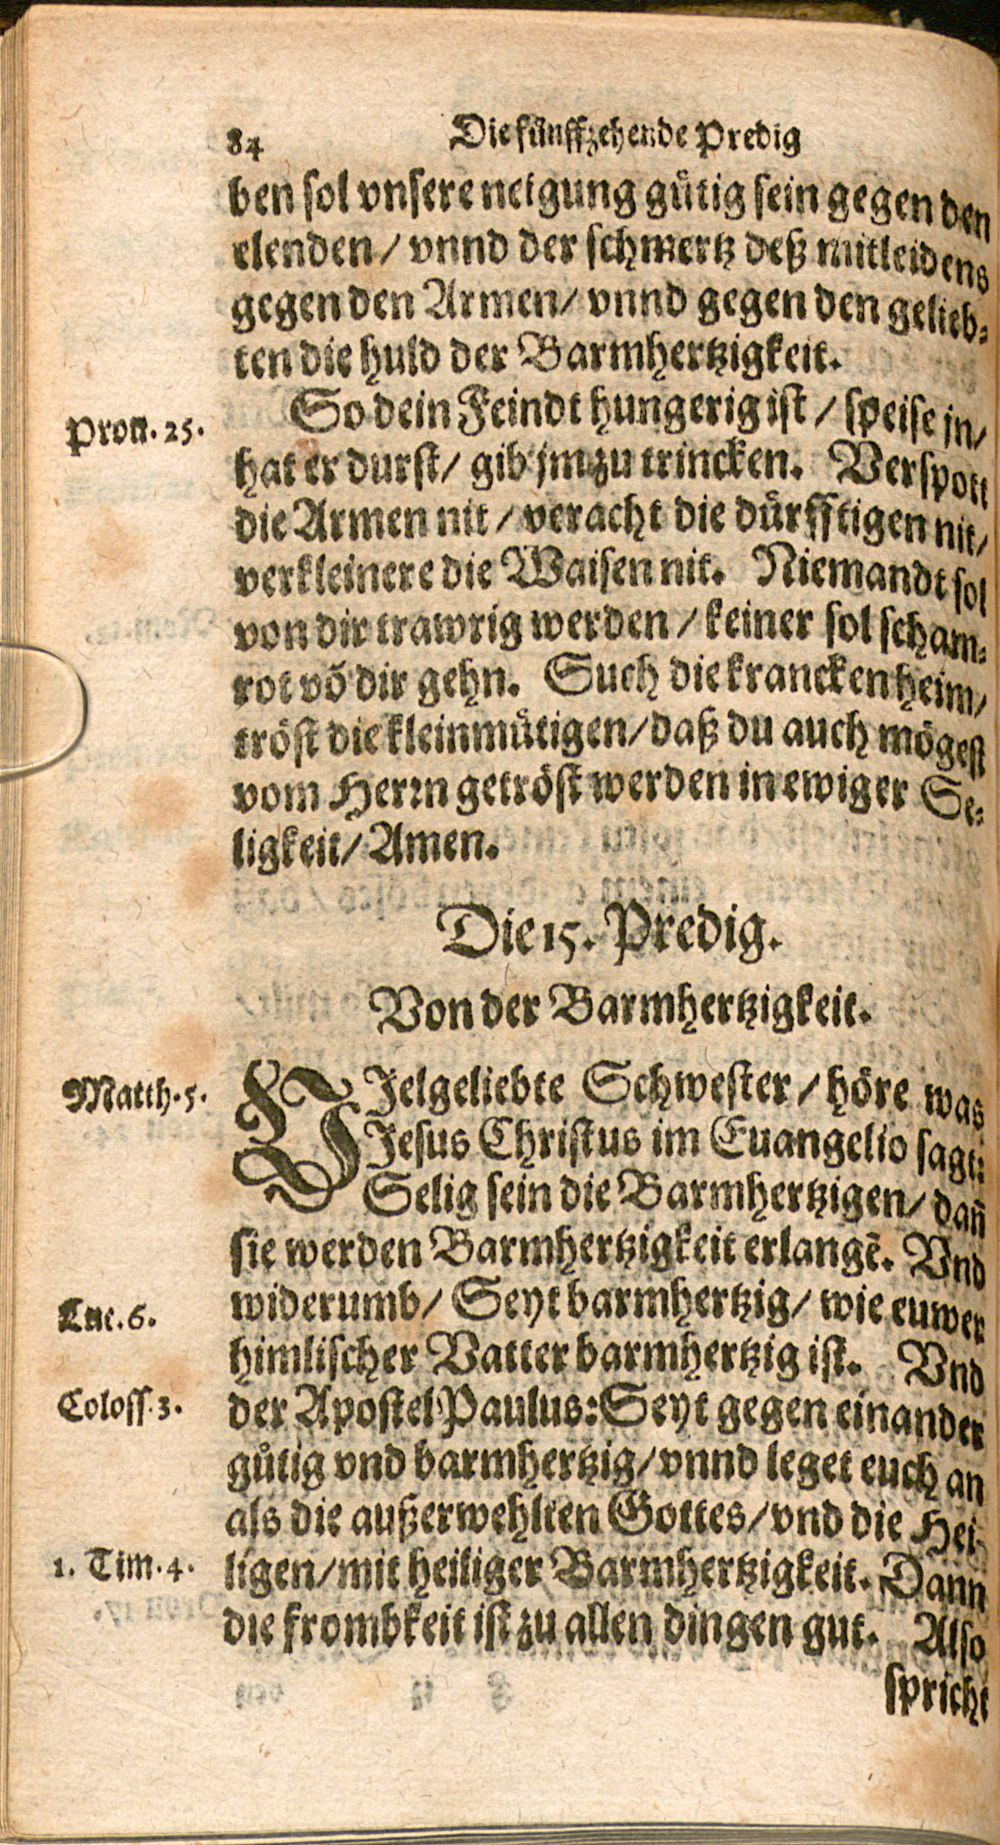 84 Die fünffzehende Predig
ben sol vnsere neigung gütig sein gegen den
elenden / vnnd der schmertz deß mitleidens
gegen den Armen / vnnd gegen den gelieb-
ten die huld der Barmhertzigkeit.
Prou. 25.
So dein Feindt hungerig ist / speise jn /
hat er durst / gib jm zu trincken. Verspott
die Armen nit / veracht die dürfftigen nit /
verkleinere die Waisen nit. Niemandt sol
von dir trawrig werden / keiner sol scham-
rot võ dir gehn. Such die krancken heim /
tröst die kleinmütigen / daß du auch mögest
vom Herrn getröst werden in ewiger Se-
ligkeit / Amen.
Die 15. Predig.
Von der Barmhertzigkeit.
Matth. 5.
VIelgeliebte Schwester / höre was
Jesus Christus im Euangelio sagt:
Selig sein die Barmhertzigen / dañ
sie werden Barmhertzigkeit erlangẽ. Vnd
Luc. 6.
widerumb / Seyt barmhertzig / wie euwer
himlischer Vatter barmhertzig ist. Vnd
Coloss. 3.
der Apostel Paulus: Seyt gegen einander
gütig vnd barmhertzig / vnnd leget euch an
als die außerwehlten Gottes / vnd die Hei-
1. Tim. 4.
ligen / mit heiliger Barmhertzigkeit. Dann
die frombkeit ist zu allen dingen gut. Also
spricht